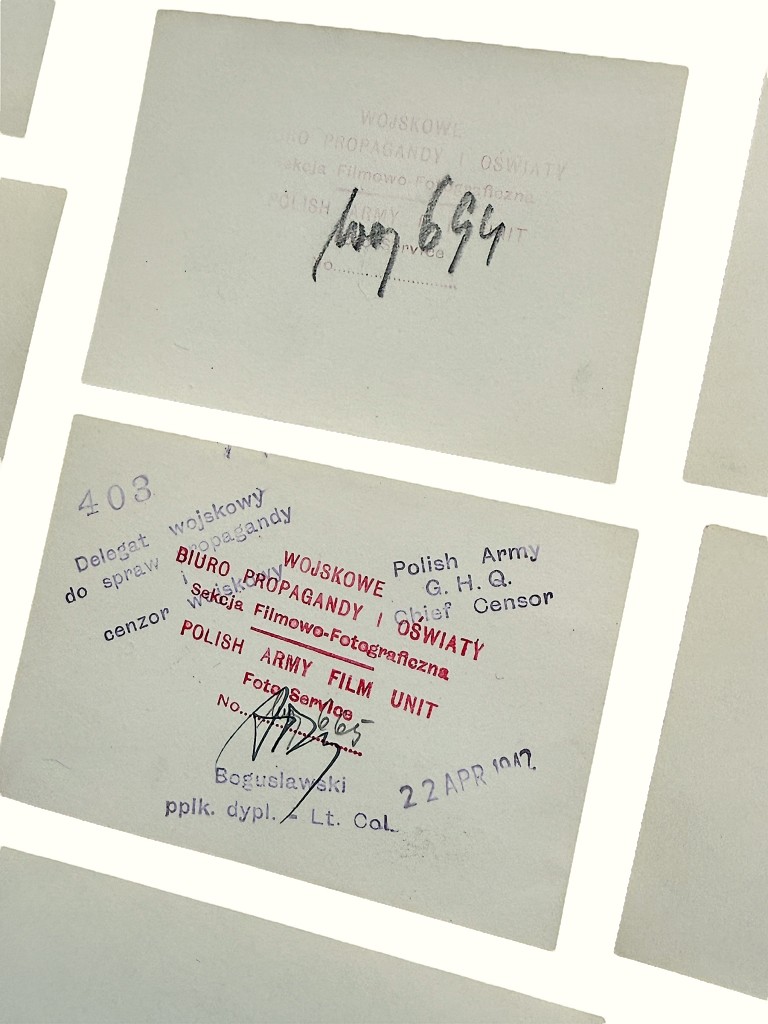 WOJSKOWE
BIURO PROPAGANDY I OŚWIATY
Sekcja Filmowo-Fotograficzna
POLISH ARMY UNIT
Service
694
403
Delegat wojskowy
do spraw propagandy
i
cenzor wojskowy
WOJSKOWE
BIURO PROPAGANDY I OŚWIATY
Sekcja Filmowo-Fotograficzna
POLISH ARMY FILM UNIT
Foto Service
No. 665
Polish Army
G. H. Q.
Chief Censor
Boguslawski
pplk. dypl. - Lt. Col.
22 APR 1942